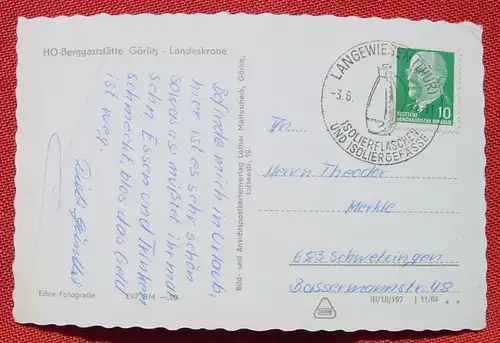 HO-Berggaststätte Görlitz - Landeskrone
Befinde mich in Urlaub,
hier ist es sehr schön
sowas müßtet ihr mal
sehn Essen und Trinken
schmeckt, blos das Geld
ist weg.
Echte Fotografie
EVP DM
Bild- und Ansichtspostkartenverlag Lothar Mattuscheck, Görlitz,
Luisenstr. 19
LANGEWIESEN (THÜR)
-3.6.
ISOLIERFLASCHEN
UND ISOLIERGEFÄSSE
DEUTSCHE
DEMOKRATISCHE REPUBLIK
10
An
Herrn Theodor
Merkle
683 Schwetzingen
Bassermannstr. 48
III/18/197 J 11/64